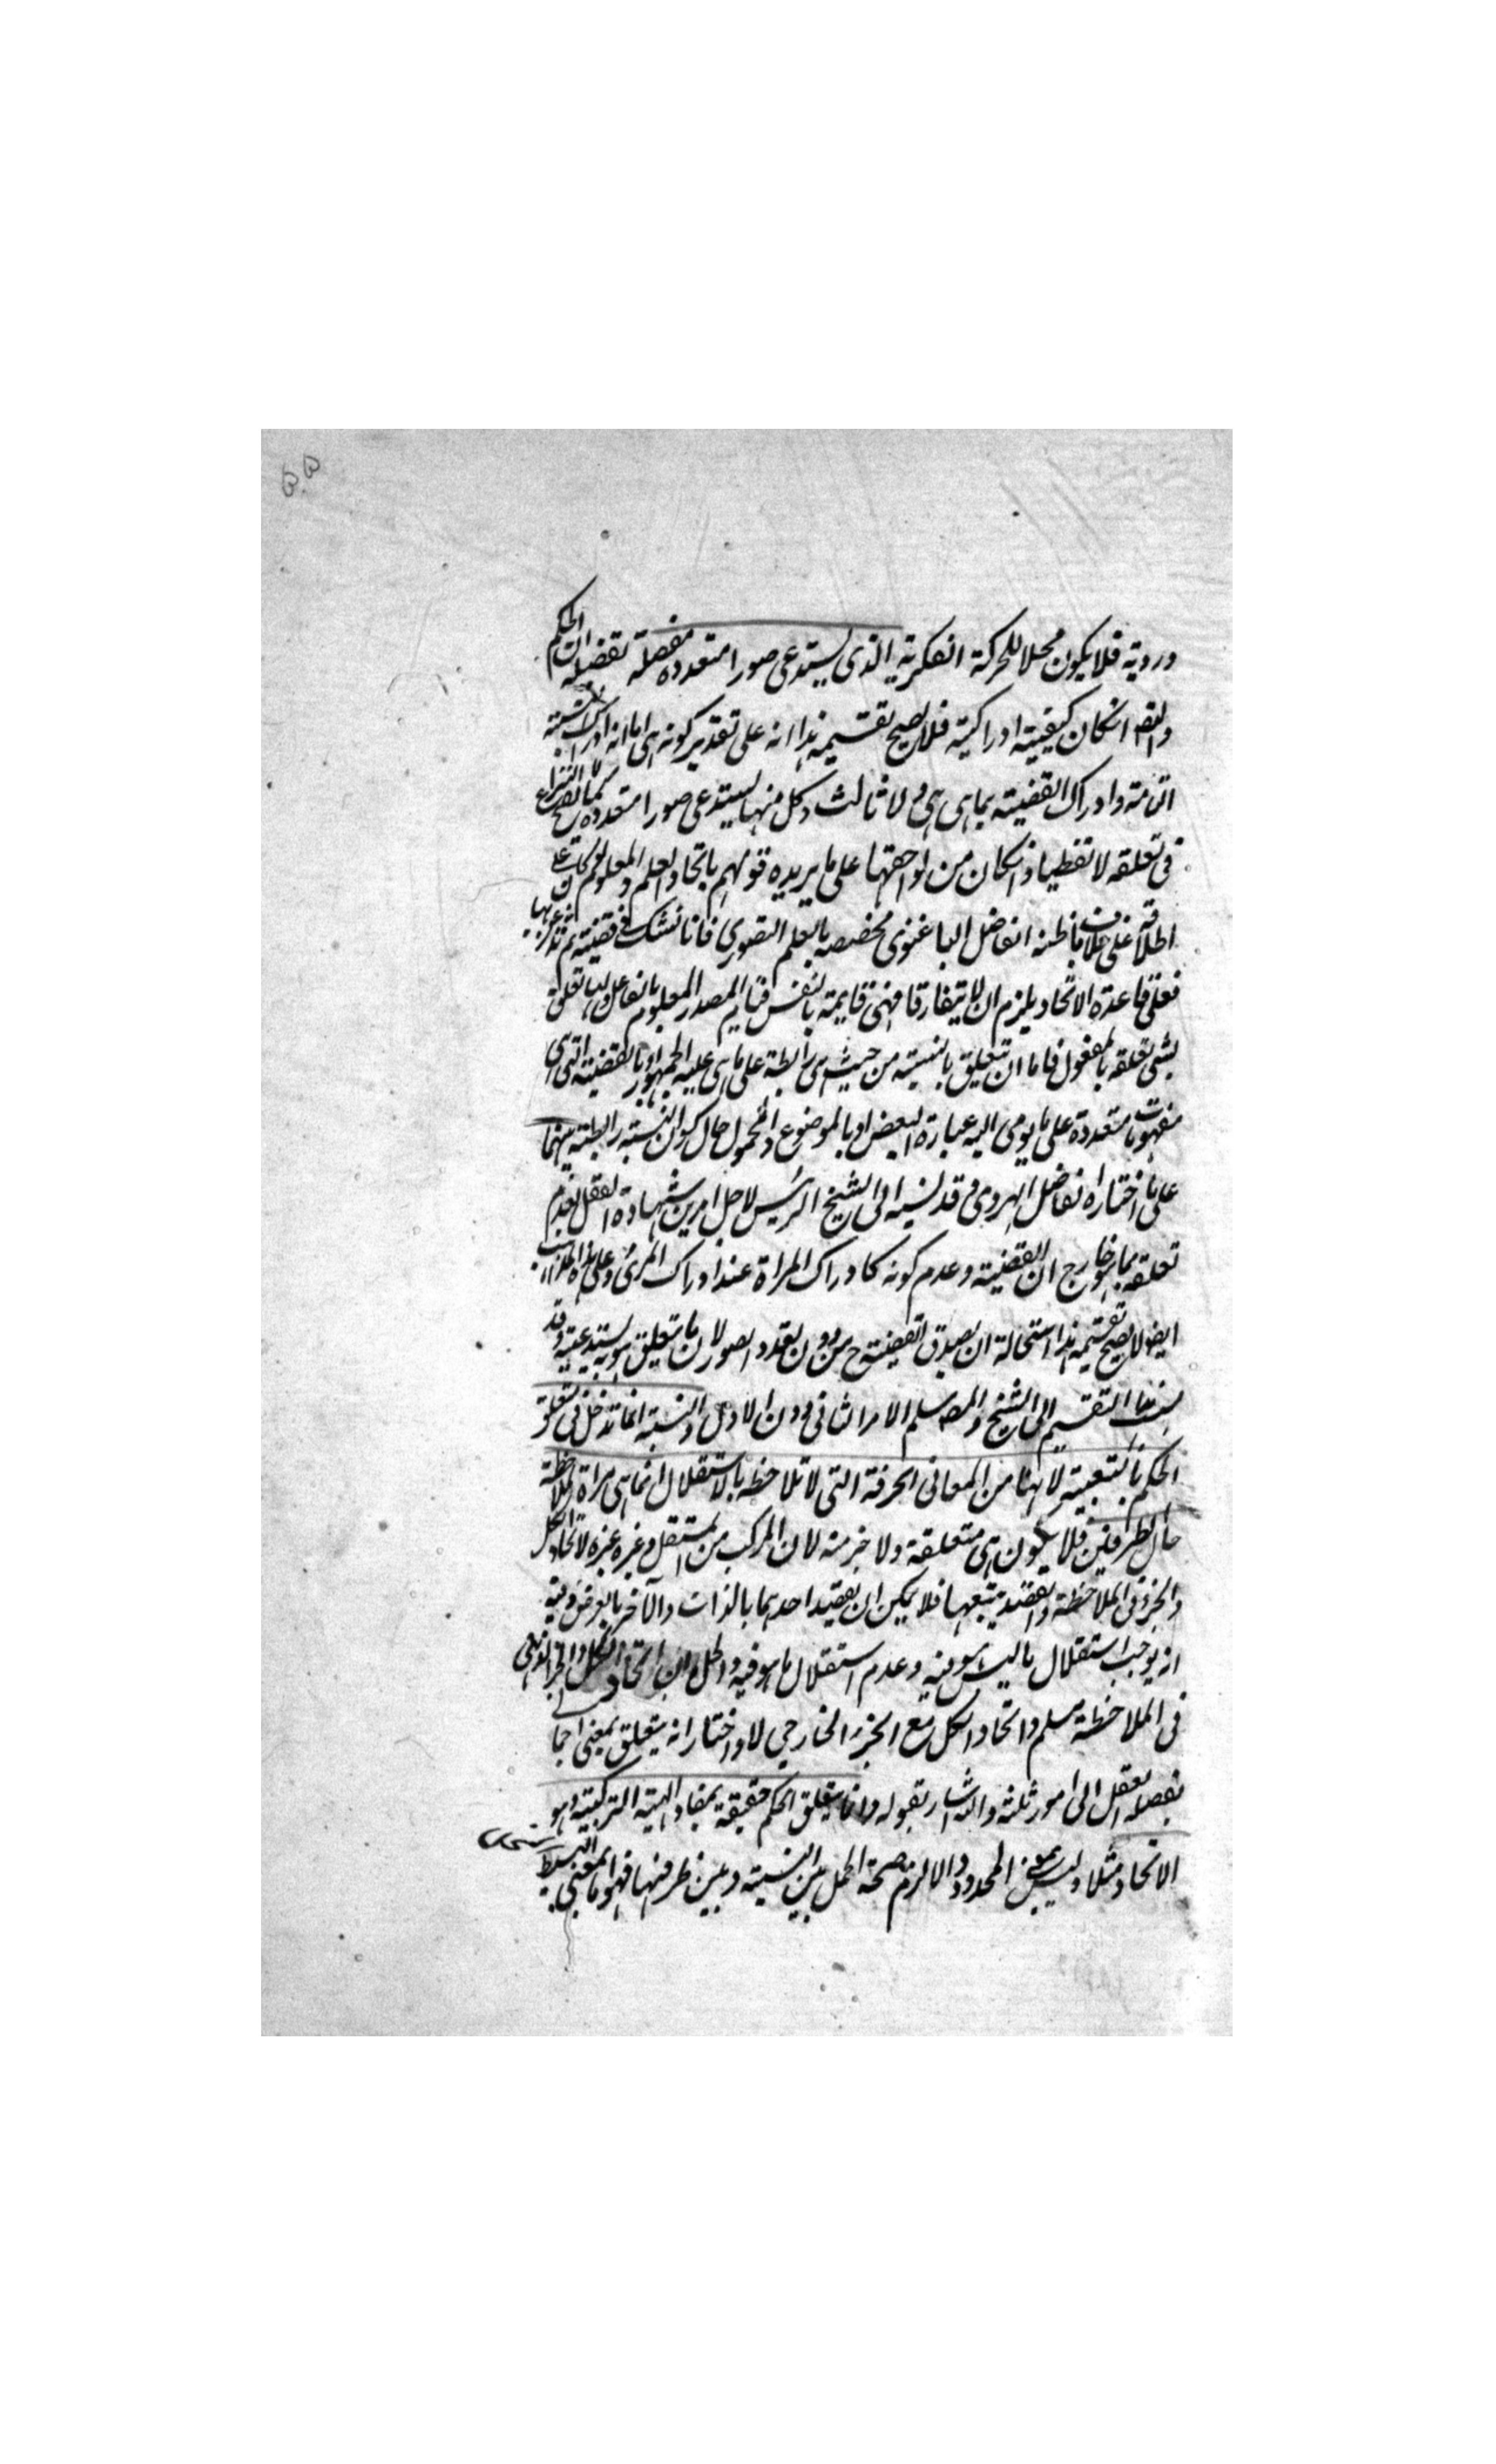 ورويته فلا يكون محلا للحركة الفكرية الذى يستدعى صورا متعددة مفصلة تفضله الحكم
والتصو انكان كيفية ادراكية فلا يصح تقسيمه هذا انه على تقدير كونه هى اما انه ادراك النسبة
التامة وادراك القضية بما هى هى ولا ثالث وكل منها يستدعى صورا متعددة
فى تعلقه لا تفطيا وانكان من لواحقها على ما يريده قولهم باتحاد العلم والمعلوم
اطلاقه على خلاف ما ظنه الفاضل الباغنوى مخصصه بالعلم التصورى فانا نشك فى قضية ثم
فعلى قاعدة الاتحاد يلزم ان لا يتفارقا فهى قايمة بالنفس قيام المصدر المعلوم بالفاعل
بشى تعلقه بالمفعول فاما ان تتعلق بالنسبة من حيث هى رابطة على ما هى عليه الجمهور او بالقضية التى هى
مفهومات متعددة على ما يومى اليه عبارة البعض او بالموضوع والمحمول حال كون النسبة رابطية بينهما
على ما اختاره الفاضل الهروى وقد نسبه الى الشيخ الرئيس لاجل امرين شهادة العقل بعدم
تعلقه بما هو خارج ان القضية وعدم كونه كادراك المراة عند ادراك المرئ وعلى هذا
ايضا لا يصح تقسيمه هذا استحالة ان يصدق القضية ح من دون تعدد الصور لان ما تتعلق هو به يستدعيه وقد
التقسيم الى الشيخ والمصـ سلم الامر الثانى دون الاول والنسبة انما تدخل فى تعلق
الحكم بالتبعية لانها من المعانى الحرفية التى لا تلاحظ بالاستقلال انما هى مراة لملاحظة
حال الطرفين فلا يكون هى متعلقة ولا جزمنه لان المركب من المستقل وغيره غيره لاتحاد الكل
والجزء فى الملاحظة والقصد يتبعها فلا يمكن ان يقصد احدهما بالذات والآخر بالعرض وفيه
انه يوجب استقلال ما ليس هو فيه وعدم استقلال ما هو فيه والحل ان اتحاد الكل والجزء الذهنى
فى الملاحظة مسلم واتحاد الكل مع الجزء الخارجى لا واختار انه يتعلق بمعنى اجما
يفصله العقل الى امور ثلثة واليه اشار بقوله وانما يتعلق الحكم حقيقة بمفاد الهيئة التركيبية وهو
الاتحاد مثلا وليس بمعنى المحدود والا لزم صحة الحمل بين النسبة وبين طرفيها فهو بالمعنى البسيط